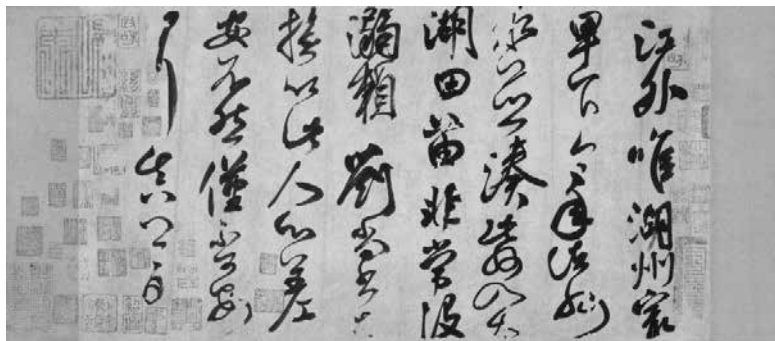 江外唯湖州㝡
卑下今年諸州
水並湊此州入太
湖田苗非常没
溺賴劉尚書与
拯以此人心差
安不然僅不可安
耳真卿白